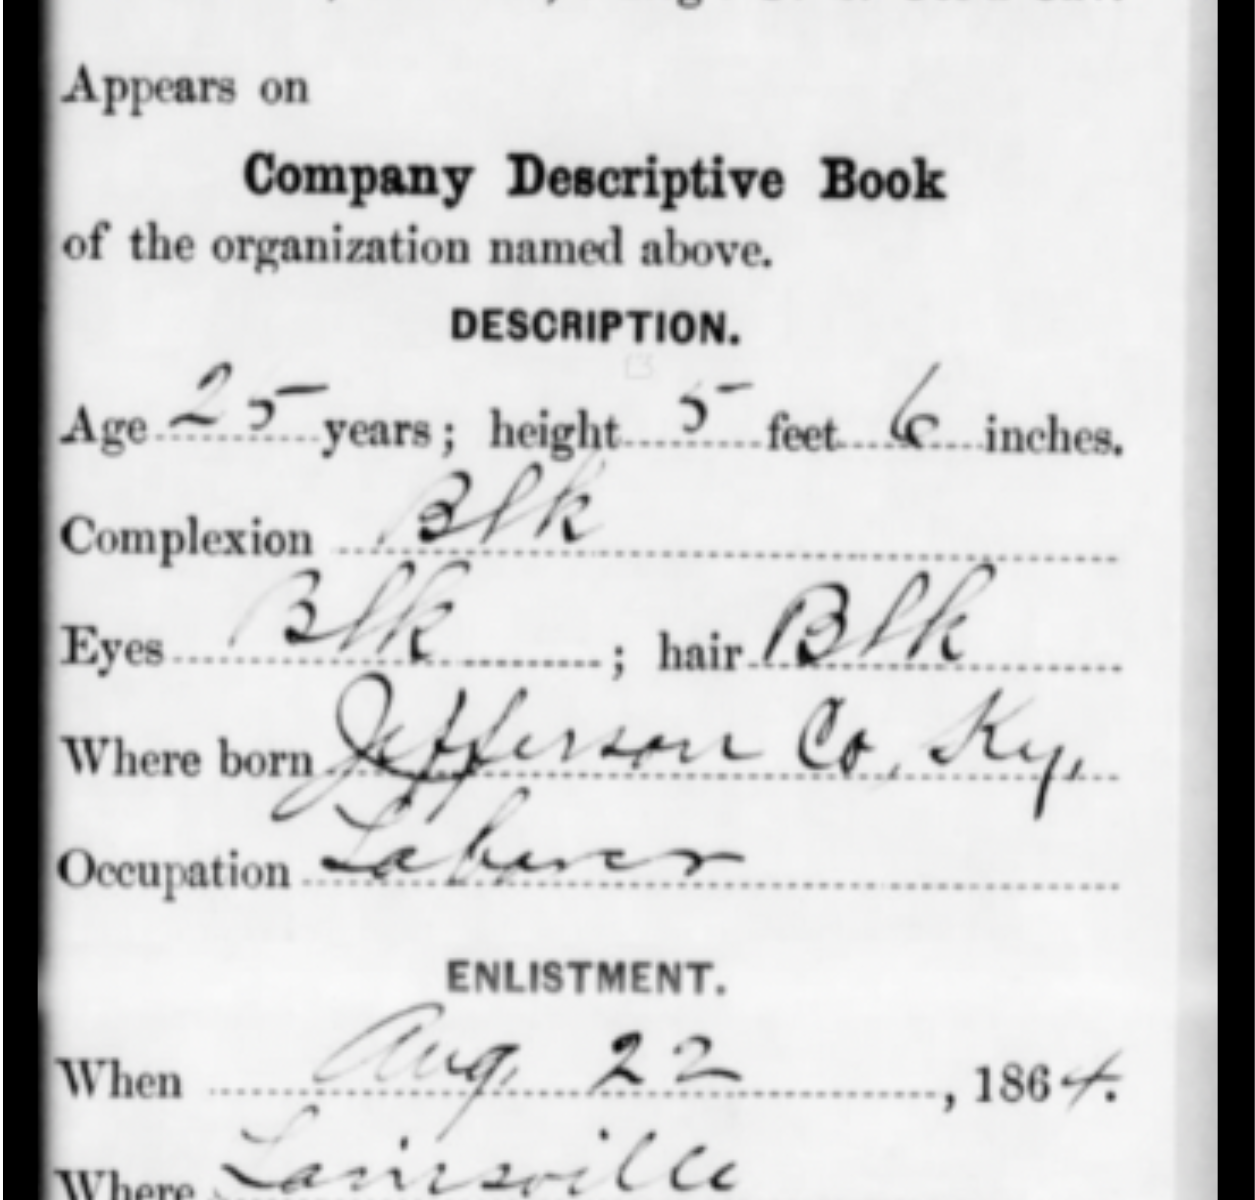 Appears on
Company Descriptive Book
of the organization named above.
DESCRIPTION.
Age 25 years; height 5 feet 6 inches.
Complexion Blk
Eyes Blk; hair Blk
Where born Jefferson Co, Ky,
Occupation Laborer
ENLISTMENT.
When Aug, 22, 1864.
Where Louisville